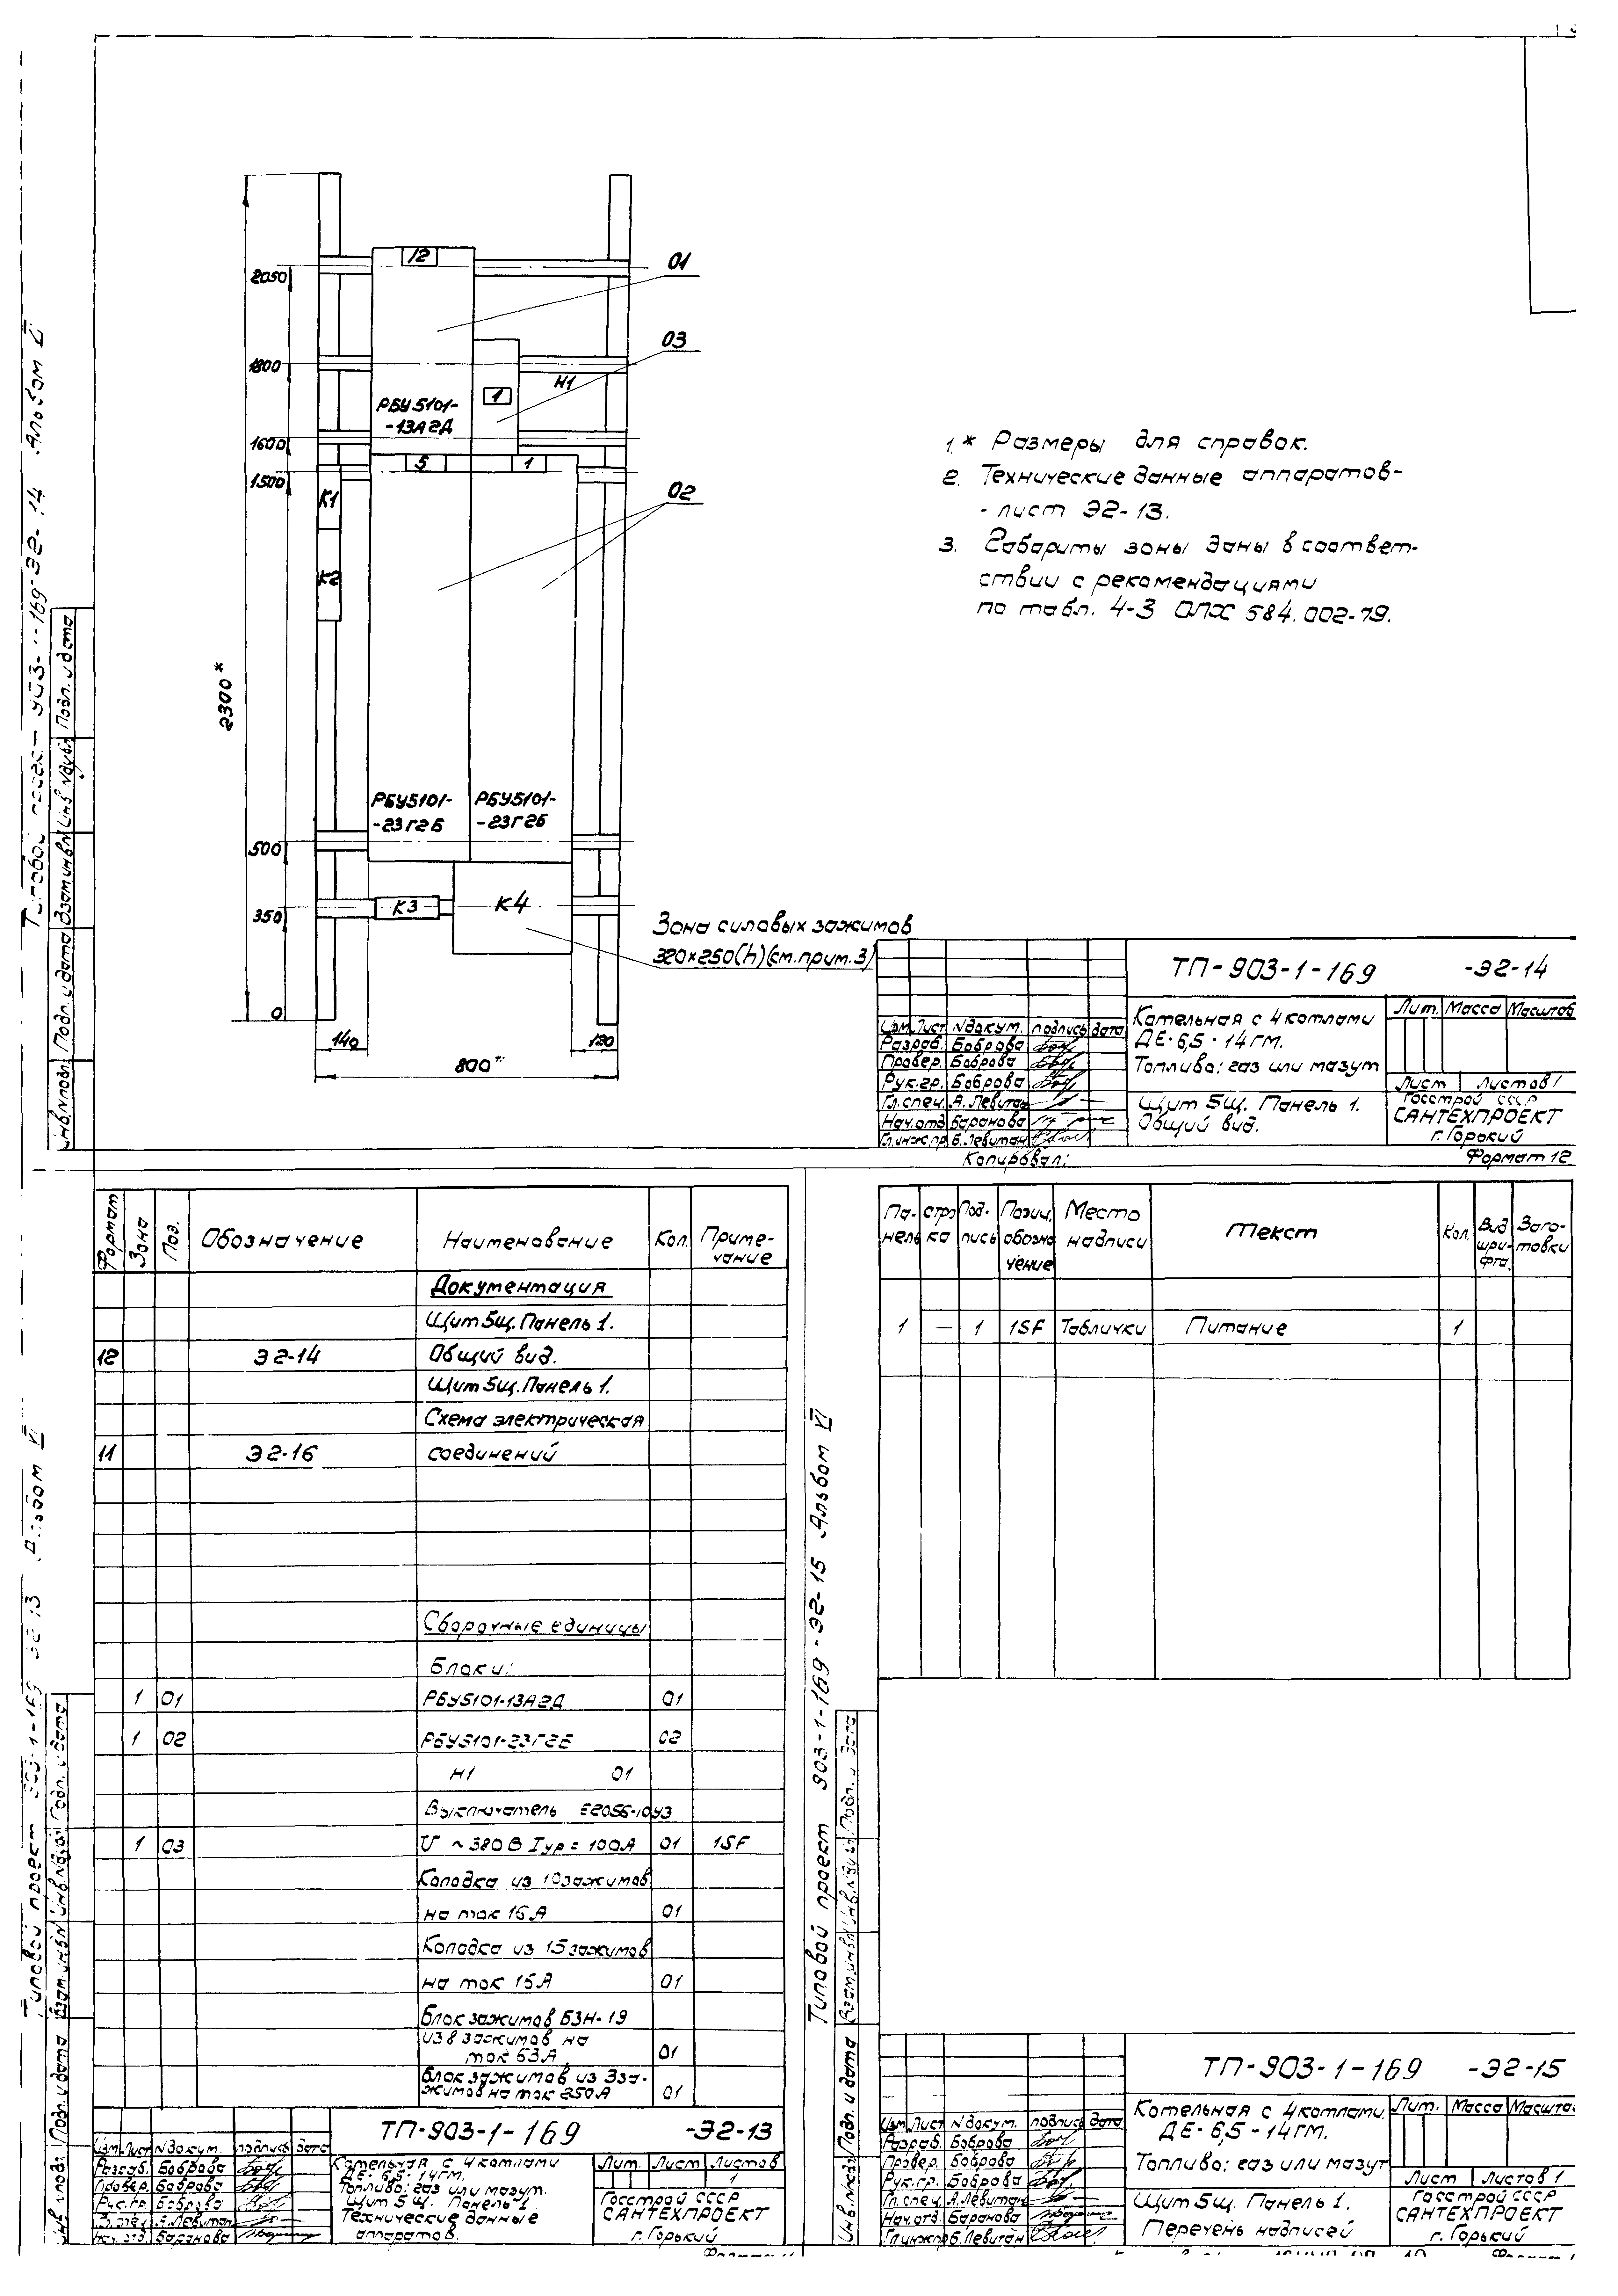 Альбом VI
2050
1800
1600
1500
500
350
0
2300*
140
800*
120
12
РБУ5101-
-13А2Д
1
Н1
5
1
К1
К2
РБУ5101-
-23Г2Б
РБУ5101-
-23Г2Б
К3
К4
01
03
02
Зона силовых зажимов
320×250(h)(см.прим.3)
1.* Размеры для справок.
2. Технические данные аппаратов-
- лист Э2-13.
3. Габариты зоны даны в соответ-
ствии с рекомендациями
по табл. 4-3 ОЛХ 684.002-79.
Подп. и дата
Взам.инв.№
Инв.№ дубл.
Подп. и дата
Инв.№подл.
ТП-903-1-169 -Э2-14
Изм. Лист №докум. подпись дата
Разраб. Боброва
Провер. Боброва
Рук.гр. Боброва
Гл.спец. А.Левитан
Нач.отд Баранова
Гл.инж.пр. Б.Левитан
Котельная с 4 котлами
ДЕ-6,5-14ГМ.
Топливо: газ или мазут
Щит 5щ. Панель 1.
Общий вид.
Лит. Масса Масштаб
Лист Листов 1
Госстрой СССР
САНТЕХПРОЕКТ
г.Горький
Копировал:
Формат 12
Формат Зона Поз. Обозначение Наименование Кол. Приме-
чание
Документация
Щит 5щ. Панель 1.
12 Э2-14 Общий вид.
Щит 5щ. Панель 1.
Схема электрическая
11 Э2-16 соединений
Сборочные единицы
Блоки:
1 01 РБУ5101-13А2Д 01
1 02 РБУ5101-23Г2Б 02
Н1 01
Выключатель
1 03 U ~380В Iур=100А 01 1SF
Колодка из 10 зажимов
на ток 16А 01
Колодка из 15 зажимов
на ток 16А 01
Блок зажимов БЗН-19
из 8 зажимов на
ток 63А 01
Блок зажимов из 3 за-
жимов на ток 250А 01
ТП-903-1-169 -Э2-13
Изм. Лист №докум. подпись дата
Разраб. Боброва
Провер. Боброва
Рук.гр. Боброва
А.Левитан
Баранова
Котельная с 4 котлами
ДЕ-6,5-14ГМ.
Топливо: газ или мазут.
Щит 5щ. Панель 1.
Технические данные
аппаратов.
Лит. Лист Листов
1
Госстрой СССР
САНТЕХПРОЕКТ
г.Горький
Типовой проект 903-1-169-Э2-15 Альбом VI
Па-
нель
стро
ка
Под-
пись
Позиц.
обозна
чение
Место
надписи
Текст
Кол.
Вид
шри-
фта.
Заго-
товки
1 — 1 1SF Таблички Питание 1
Подп. и дата
Инв.№подл.
ТП-903-1-169 -Э2-15
Изм. Лист №докум. подпись дата
Разраб. Боброва
Провер. Боброва
Рук.гр. Боброва
Гл.спец. А.Левитан
Нач.отд. Баранова
Гл.инж.пр Б.Левитан
Котельная с 4 котлами
ДЕ-6,5-14ГМ.
Топливо: газ или мазут
Щит 5щ. Панель 1.
Перечень надписей
Лит. Масса
Лист Листов 1
Госстрой СССР
САНТЕХПРОЕКТ
г.Горький